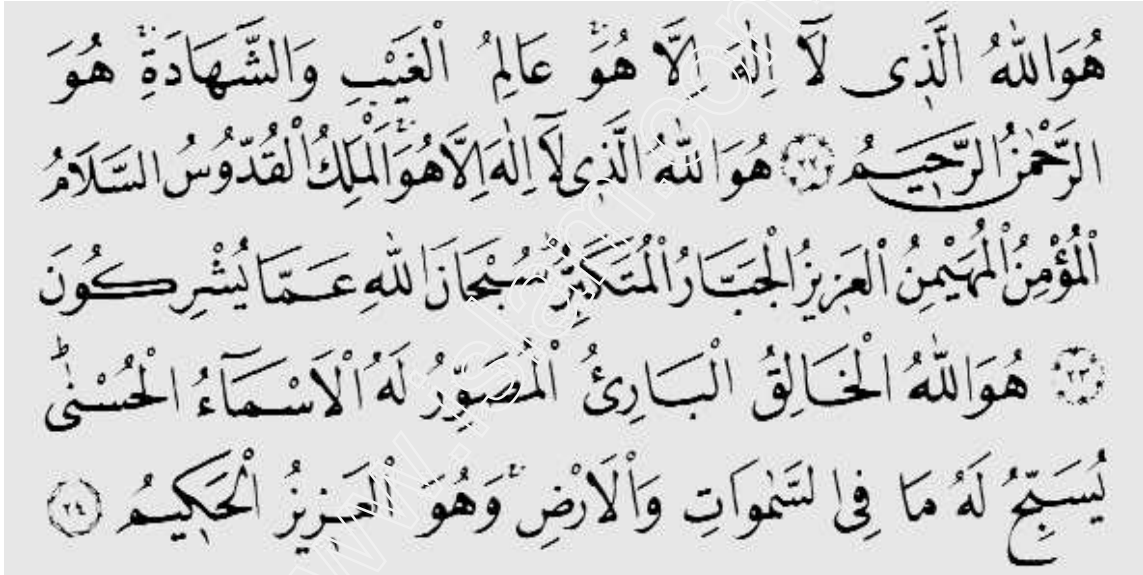 هُوَ اللّٰهُ الَّذِى لَآ اِلٰهَ اِلَّا هُوَۚ عَالِمُ الْغَيْبِ وَالشَّهَادَةِۚ هُوَ
الرَّحْمٰنُ الرَّحِيمُ ﴿٢٢﴾ هُوَ اللّٰهُ الَّذِى لَآ اِلٰهَ اِلَّا هُوَۚ اَلْمَلِكُ الْقُدُّوسُ السَّلَامُ
الْمُؤْمِنُ الْمُهَيْمِنُ الْعَزِيزُ الْجَبَّارُ الْمُتَكَبِّرُۜ سُبْحَانَ اللّٰهِ عَمَّا يُشْرِكُونَ
﴿٢٣﴾ هُوَ اللّٰهُ الْخَالِقُ الْبَارِئُ الْمُصَوِّرُ لَهُ الْاَسْمَآءُ الْحُسْنٰىۜ
يُسَبِّحُ لَهُ مَا فِى السَّمٰوَاتِ وَالْاَرْضِۚ وَهُوَ الْعَزِيزُ الْحَكِيمُ ﴿٢٤﴾